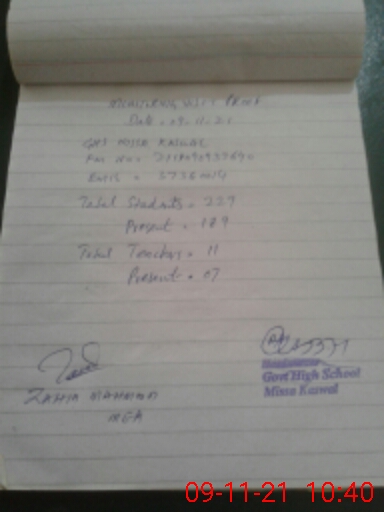 MONITORING VISIT PROOF
Date = 09-11-21
GHS MISSA KASWAL
EMIS = 37360014
Total Students = 227
Present = 189
Total Teachers = 11
Present = 07
ZAHID MAHMOOD
MEA
Headmaster
Govt High School
Missa Kaswal
09-11-21 10:40